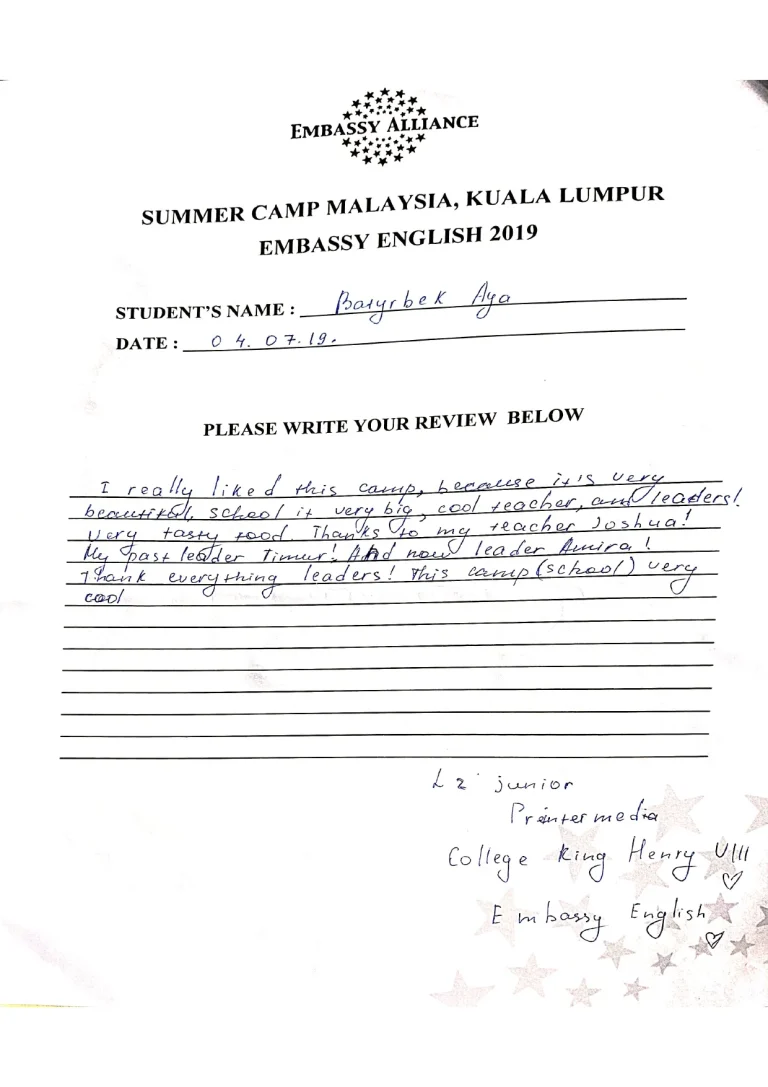 EMBASSY ALLIANCE
SUMMER CAMP MALAYSIA, KUALA LUMPUR
EMBASSY ENGLISH 2019
STUDENT'S NAME : Batyrbek Aya
DATE : 04.07.19.
PLEASE WRITE YOUR REVIEW BELOW
I really liked this camp, because it's very
beautiful, school it very big, cool teacher, and leaders!
Very tasty food Thanks to my teacher Joshua!
My past leader Timur! And now leader Amira!
Thank everything leaders! This camp (school) very
cool
L2 junior
Preintermedia
College King Henry VIII
Embassy English